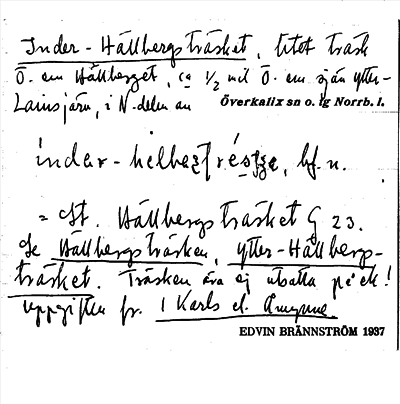 Inder-Hällbergsträsket, litet träsk
Ö. om Hällberget, ca 1/2 mil Ö. om sjön Ytter-
Lainsjärv, i N-delen av Överkalix sn o. tg Norrb. l.
inder-
= St. Hällbergsträsket G 23.
Se Hällbergsträsken, Ytter-Hällbergs-
träsket. Träsken äro ej utsatta på ek!
Uppgiften fr. 1 Karls el.
EDVIN BRÄNNSTRÖM 1937